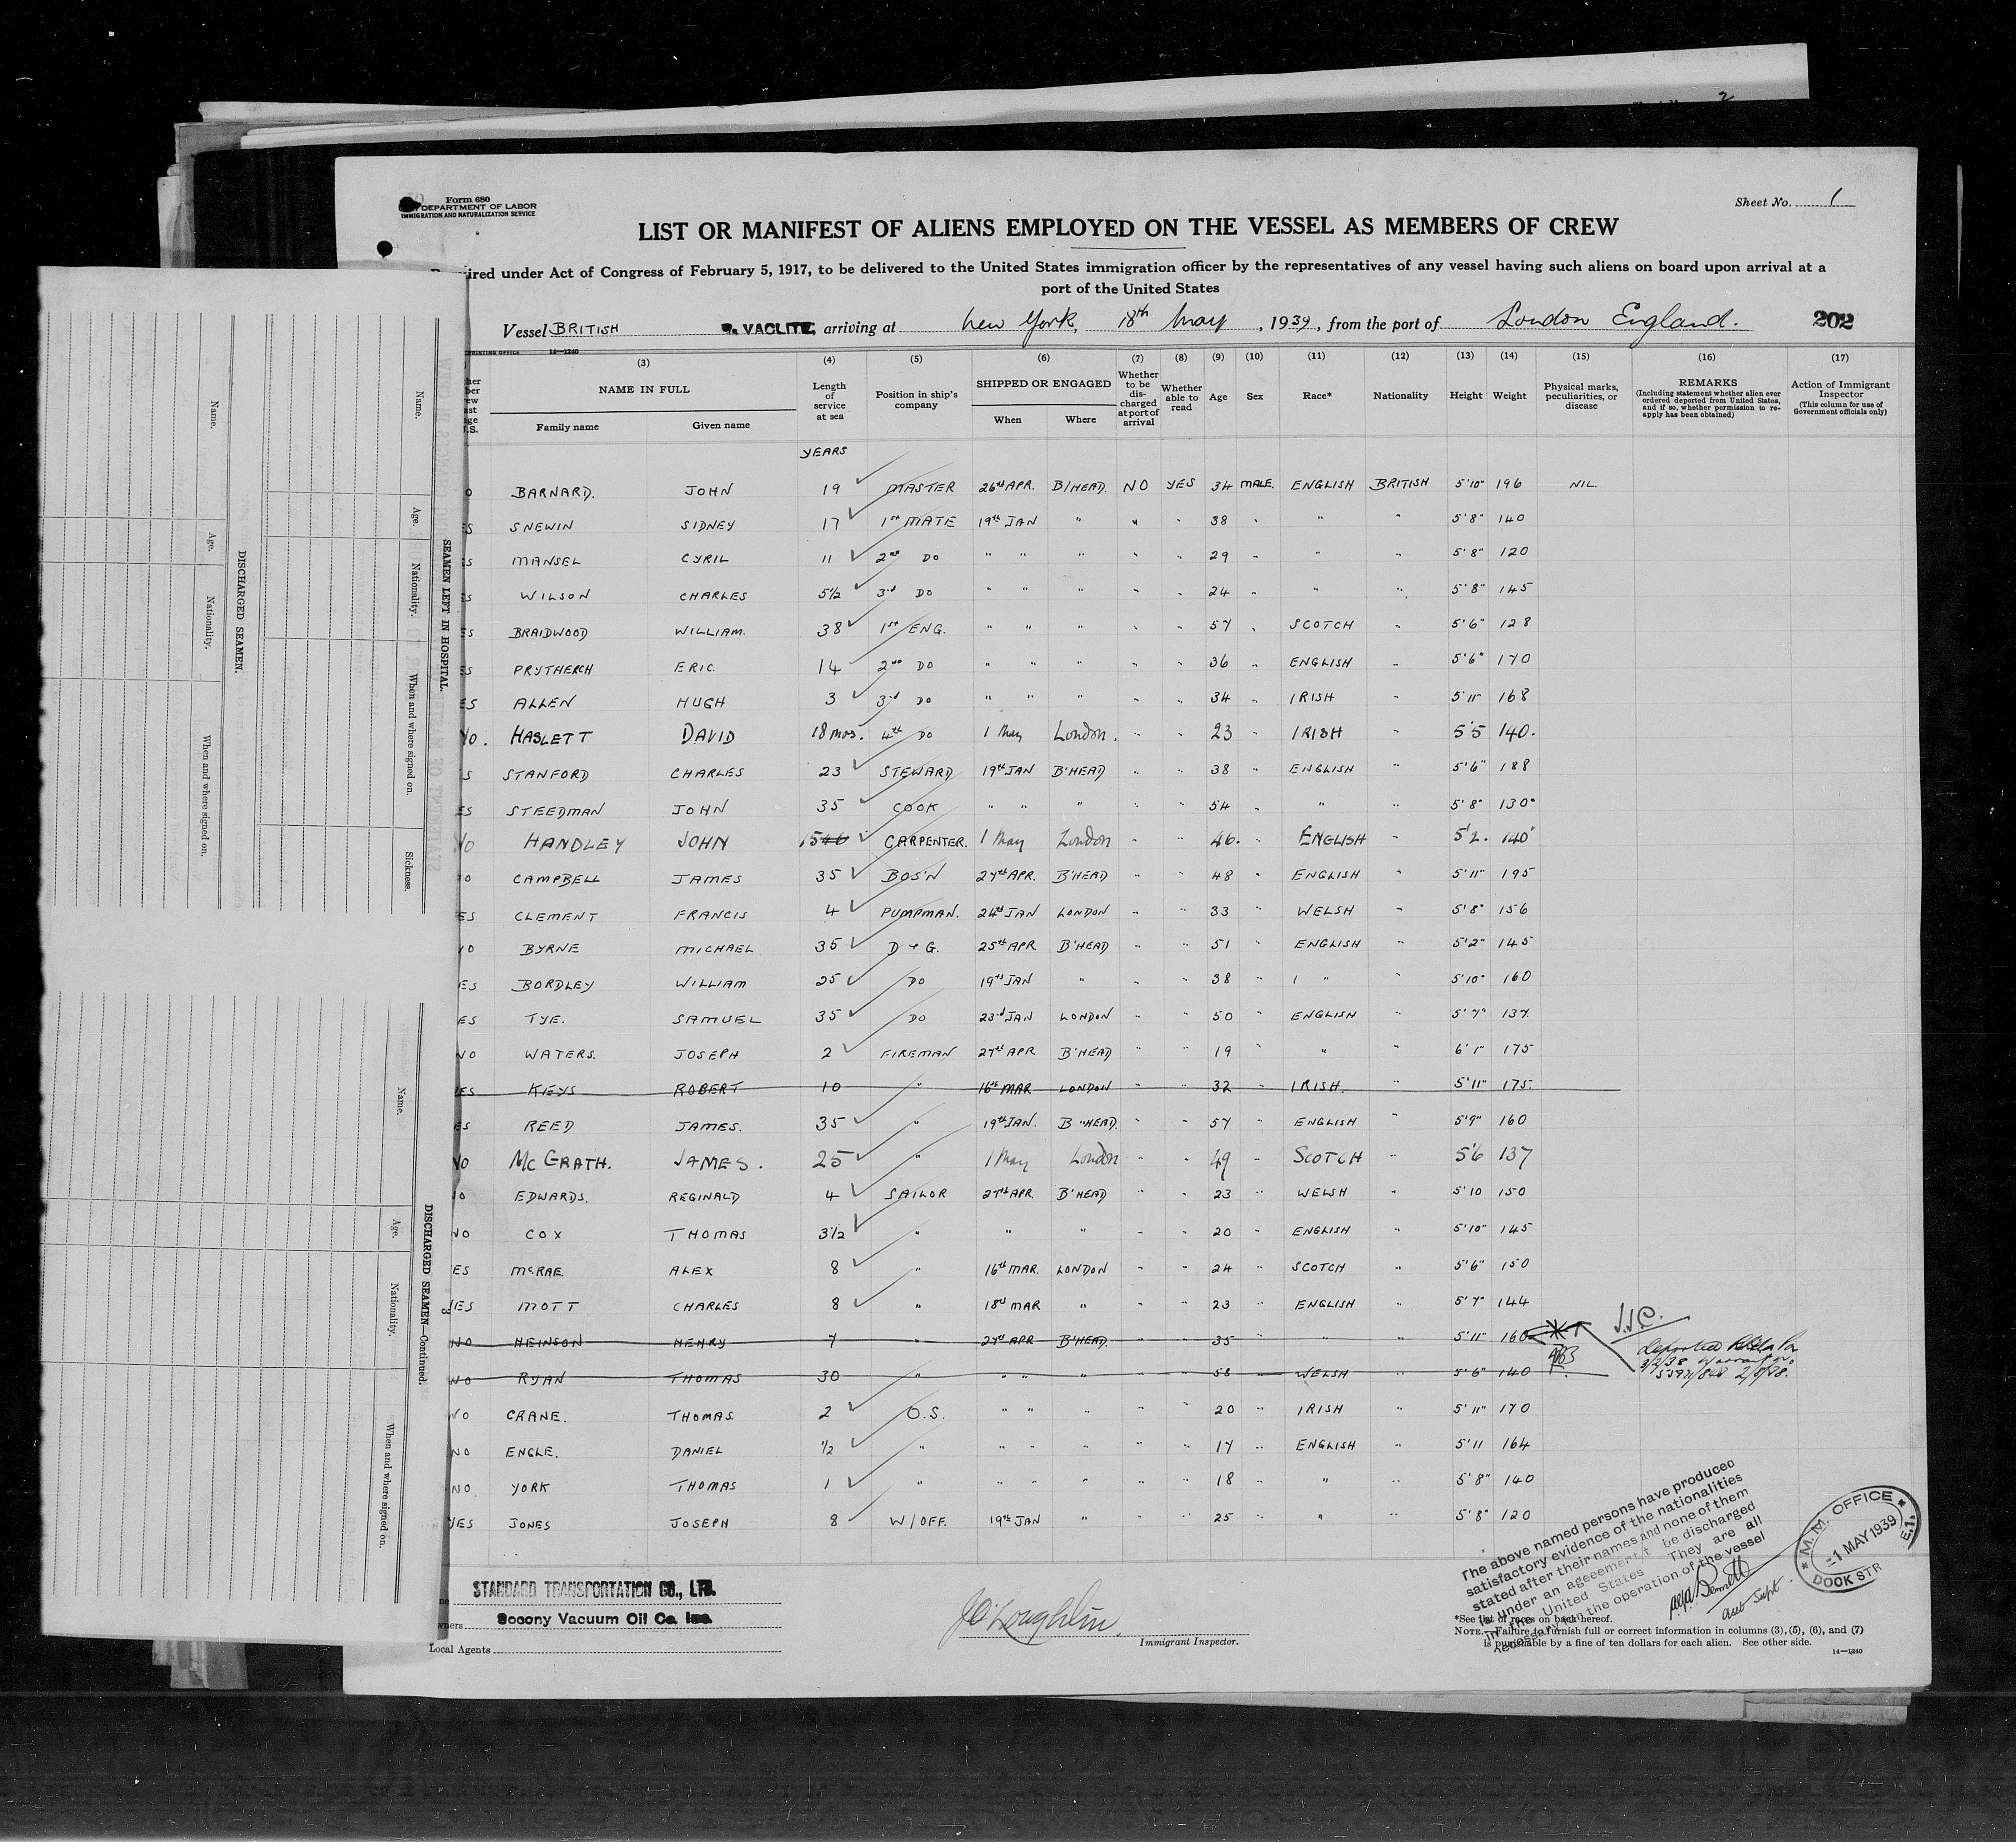 2
Form 680
DEPARTMENT OF LABOR
IMMIGRATION AND NATURALIZATION SERVICE
Sheet No. 1
LIST OR MANIFEST OF ALIENS EMPLOYED ON THE VESSEL AS MEMBERS OF CREW
ired under Act of Congress of February 5, 1917, to be delivered to the United States immigration officer by the representatives of any vessel having such aliens on board upon arrival at a
port of the United States
Vessel BRITISH S. VACLITE, arriving at New York, 18th May, 1939, from the port of London England.
202
PRINTING OFFICE 14—1240
(3) (4) (5) (6) (7) (8) (9) (10) (11) (12) (13) (14) (15) (16) (17)
NAME IN FULL
Family name Given name
Length of service at sea
Position in ship's company
SHIPPED OR ENGAGED
When Where
Whether to be discharged at port of arrival
Whether able to read
Age Sex Race* Nationality Height Weight
Physical marks, peculiarities, or disease
REMARKS
(Including statement whether alien ever ordered deported from United States, and if so, whether permission to reapply has been obtained)
Action of Immigrant Inspector
(This column for use of Government officials only)
YEARS
O BARNARD. JOHN 19 MASTER 26th APR. B/HEAD. NO YES 34 MALE. ENGLISH BRITISH 5'10" 196 NIL.
ES SNEWIN SIDNEY 17 1st MATE 19th JAN " " " 38 " " " 5'8" 140
ES MANSEL CYRIL 11 2nd DO " " " " " 29 " " " 5'8" 120
ES WILSON CHARLES 5½ 3rd DO " " " " " 24 " " " 5'8" 145
ES BRAIDWOOD WILLIAM. 38 1st ENG. " " " " " 57 " SCOTCH " 5'6" 128
ES PRYTHERCH ERIC. 14 2nd DO " " " " " 36 " ENGLISH " 5'6" 170
ES ALLEN HUGH 3 3rd DO " " " " " 34 " IRISH " 5'11" 168
No. HASLETT DAVID 18 mos. 4th DO 1 May London. " " 23 " IRISH " 5'5 140.
S STANFORD CHARLES 23 STEWARD 19th JAN B'HEAD " " 38 " ENGLISH " 5'6" 188
ES STEEDMAN JOHN 35 COOK " " " " " 54 " " " 5'8" 130
No HANDLEY JOHN 15 CARPENTER. 1 May London " " 46. " ENGLISH " 5'2. 140
O CAMPBELL JAMES 35 BOS'N 27th APR. B'HEAD " " 48 " ENGLISH " 5'11" 195
ES CLEMENT FRANCIS 4 PUMPMAN. 24th JAN LONDON " " 33 " WELSH " 5'8" 156
NO BYRNE MICHAEL 35 D & G. 25th APR B'HEAD " " 51 " ENGLISH " 5'2" 145
ES BORDLEY WILLIAM 25 DO 19th JAN " " " 38 " " " 5'10" 160
ES TYE. SAMUEL 35 DO 23rd JAN LONDON " " 50 " ENGLISH " 5'7" 137.
NO WATERS. JOSEPH 2 FIREMAN 27th APR B'HEAD " " 19 " " " 6'1" 175
YES KEYS ROBERT 10 " 16th MAR LONDON " " 32 " IRISH. " 5'11" 175.
ES REED JAMES. 35 " 19th JAN. B'HEAD. " " 57 " ENGLISH " 5'9" 160
No McGRATH. JAMES. 25 " 1 May London " " 49 " SCOTCH " 5'6 137
NO EDWARDS. REGINALD 4 SAILOR 27th APR B'HEAD " " 23 " WELSH " 5'10 150
NO COX THOMAS 3½ " " " " " 20 " ENGLISH " 5'10" 145
ES McRAE. ALEX 8 " 16th MAR. LONDON " " 24 " SCOTCH " 5'6" 150
YES MOTT CHARLES 8 " 18th MAR " " " 23 " ENGLISH " 5'7" 144
NO HEINSON HENRY 7 " 27th APR B'HEAD. " " 35 " " " 5'11" 160
J.J.C.
deported
3/2/38 Warrant no.
2/8/38.
NO RYAN THOMAS 30 " " " " " " 58 " WELSH " 5'6" 140
NO CRANE. THOMAS 2 O.S. " " " " " 20 " IRISH " 5'11" 170
NO ENGLE. DANIEL ½ " " " " " " 17 " ENGLISH " 5'11 164
NO YORK THOMAS 1 " " " " " " 18 " " " 5'8" 140
YES JONES JOSEPH 8 W/OFF. 19th JAN " " " 25 " " " 5'8" 120
STANDARD TRANSPORTATION CO., LTD.
wners Socony Vacuum Oil Co. Inc.
Local Agents
J O'Loughlin.
Immigrant Inspector.
The above named persons have produced
satisfactory evidence of the nationalities
stated after their names and none of them
is under an agreement to be discharged
in the United States They are all
necessary in the operation of the vessel
Bennett
asst Supt.
* M. M. OFFICE * E.1.
-1 MAY 1939
DOCK STR
*See list of races on back hereof.
NOTE.—Failure to furnish full or correct information in columns (3), (5), (6), and (7)
is punishable by a fine of ten dollars for each alien. See other side.
14—1240
SEAMEN LEFT IN HOSPITAL.
Name. Age. Nationality. When and where signed on. Sickness.
DISCHARGED SEAMEN.
Name. Age. Nationality. When and where signed on.
DISCHARGED SEAMEN—Continued.
Name. Age. Nationality. When and where signed on.